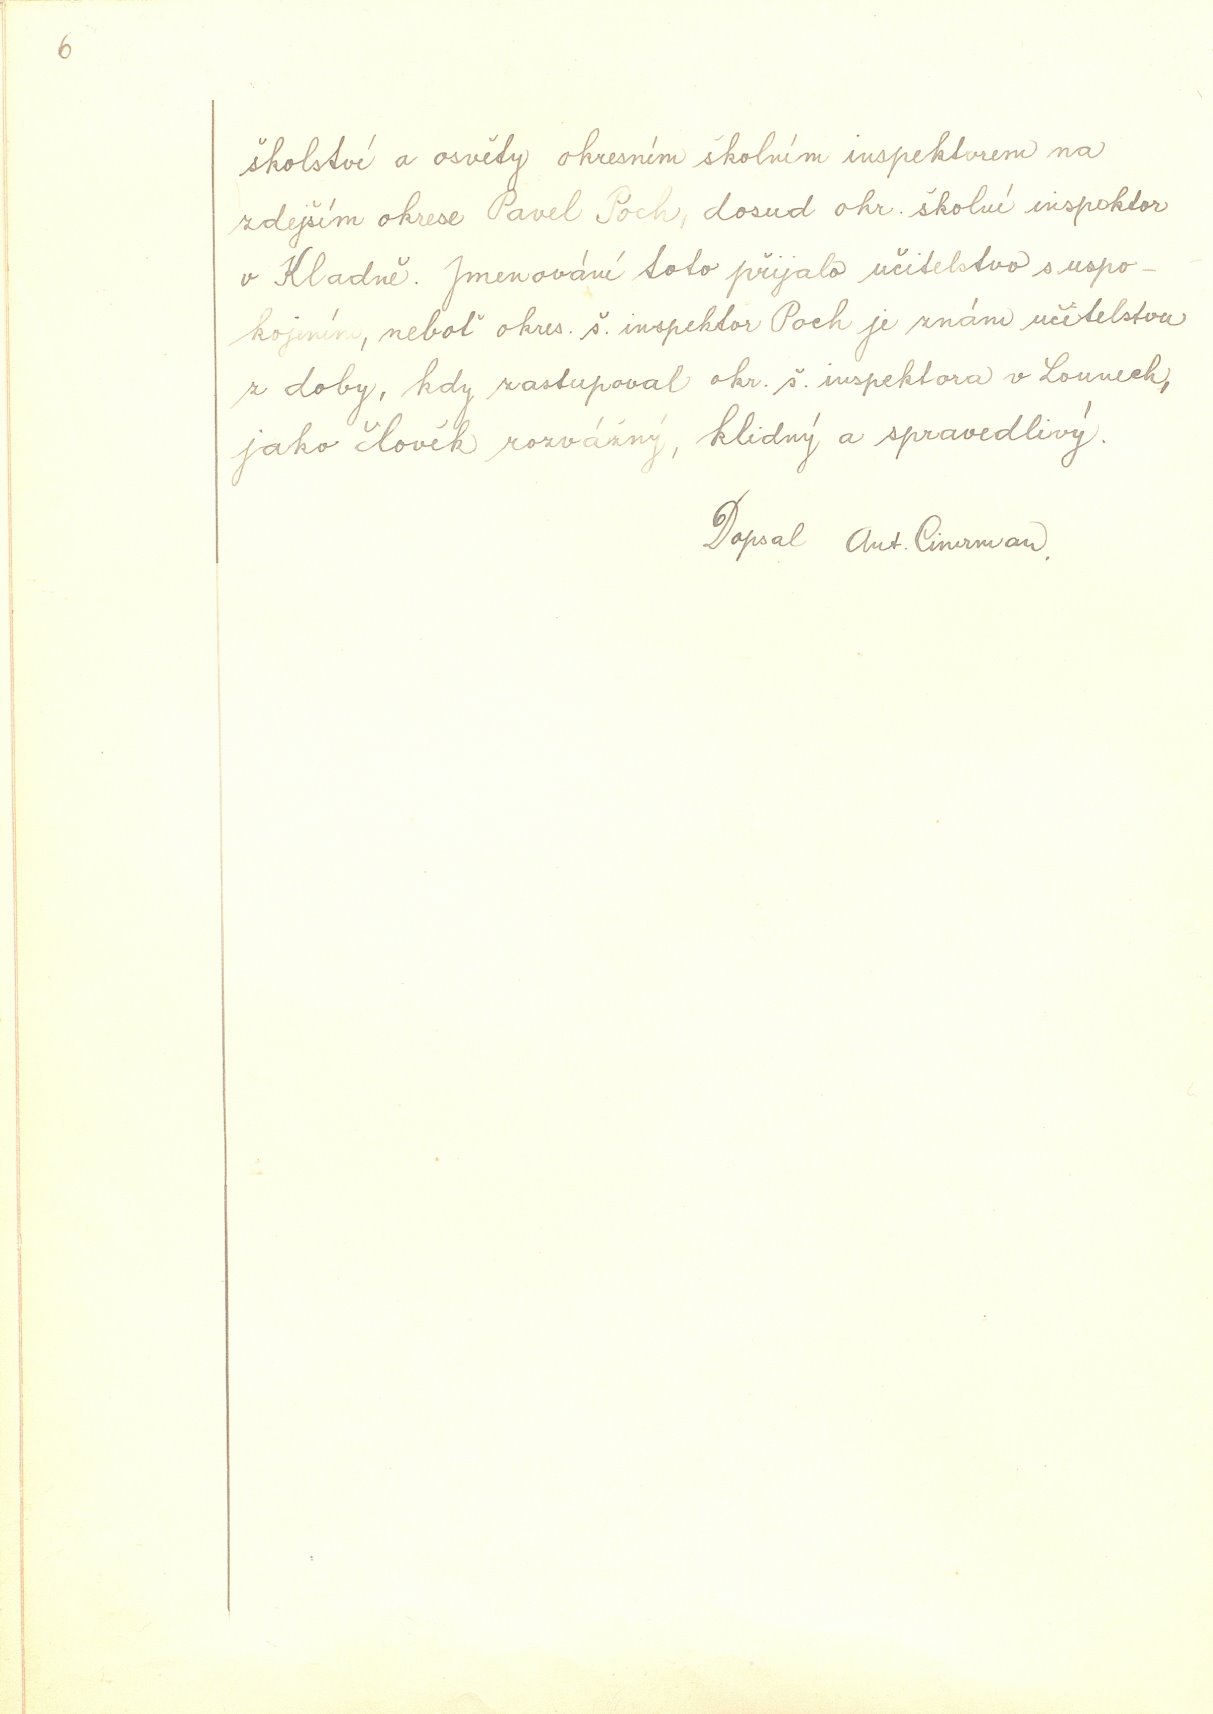 6
školství a osvěty okresním školním inspektorem na
zdejším okrese Pavel Poch, dosud okr. školní inspektor
v Kladně. Jmenování toto přijalo učitelstvo s uspo-
kojením, neboť okres. š. inspektor Poch je znám učitelstvu
z doby, kdy zastupoval okr. š. inspektora v Lounech,
jako člověk rozvážný, klidný a spravedlivý.
Dopsal Ant. Cimrman.